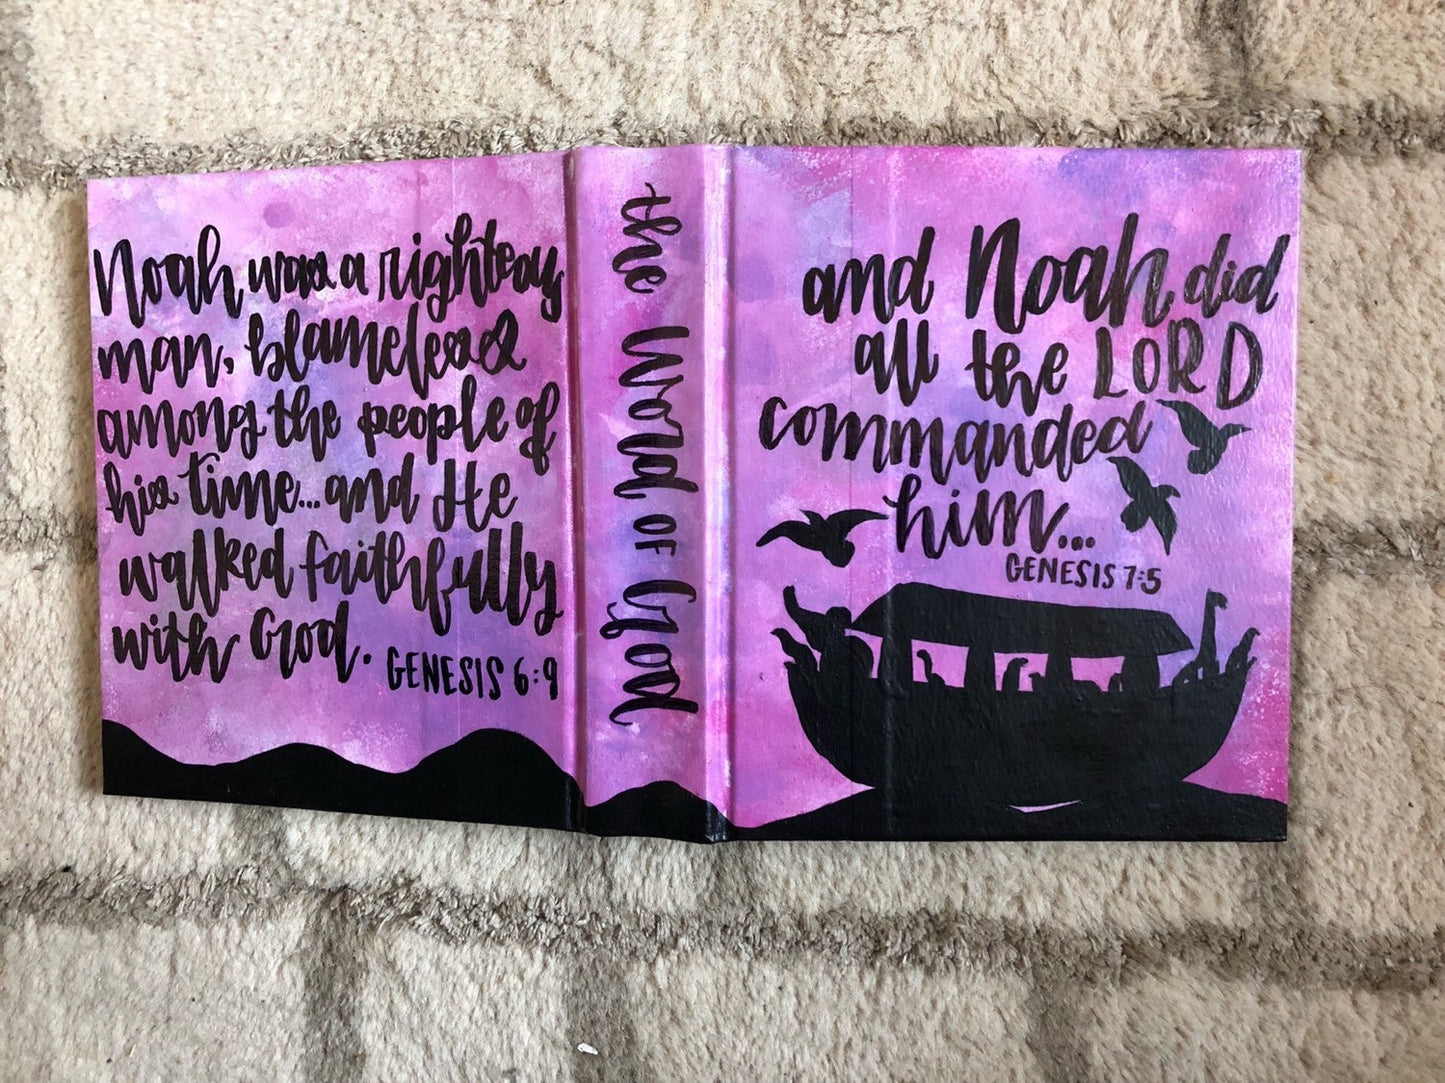 Noah was a righteous
man, blameless
among the people of
his time...and He
walked faithfully
with God.
GENESIS 6:9
the Word of God
and Noah did
all the LORD
commanded
him...
GENESIS 7:5